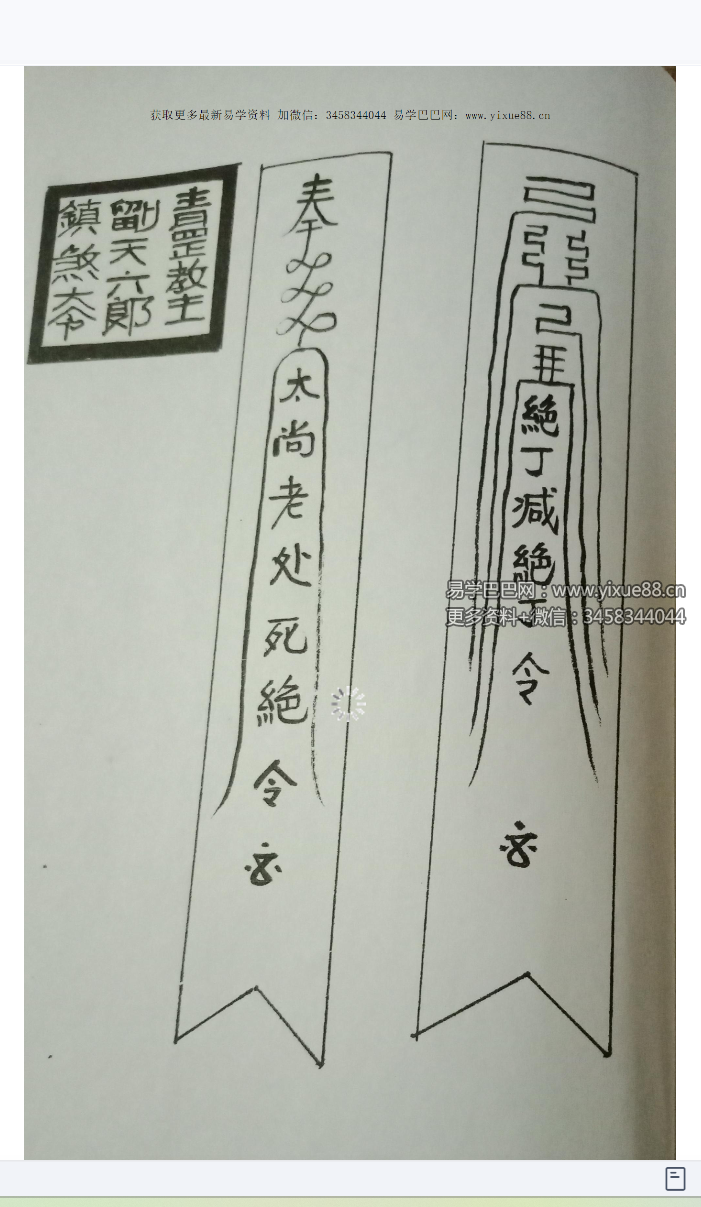 获取更多最新易学资料 加微信：3458344044 易学巴巴网：www.yixue88.cn
絕丁减絕丁令
奉
太尚老处死絕令
青罡教主
劉天六郎
鎮煞大令
易学巴巴网：www.yixue88.cn
更多资料+微信：3458344044